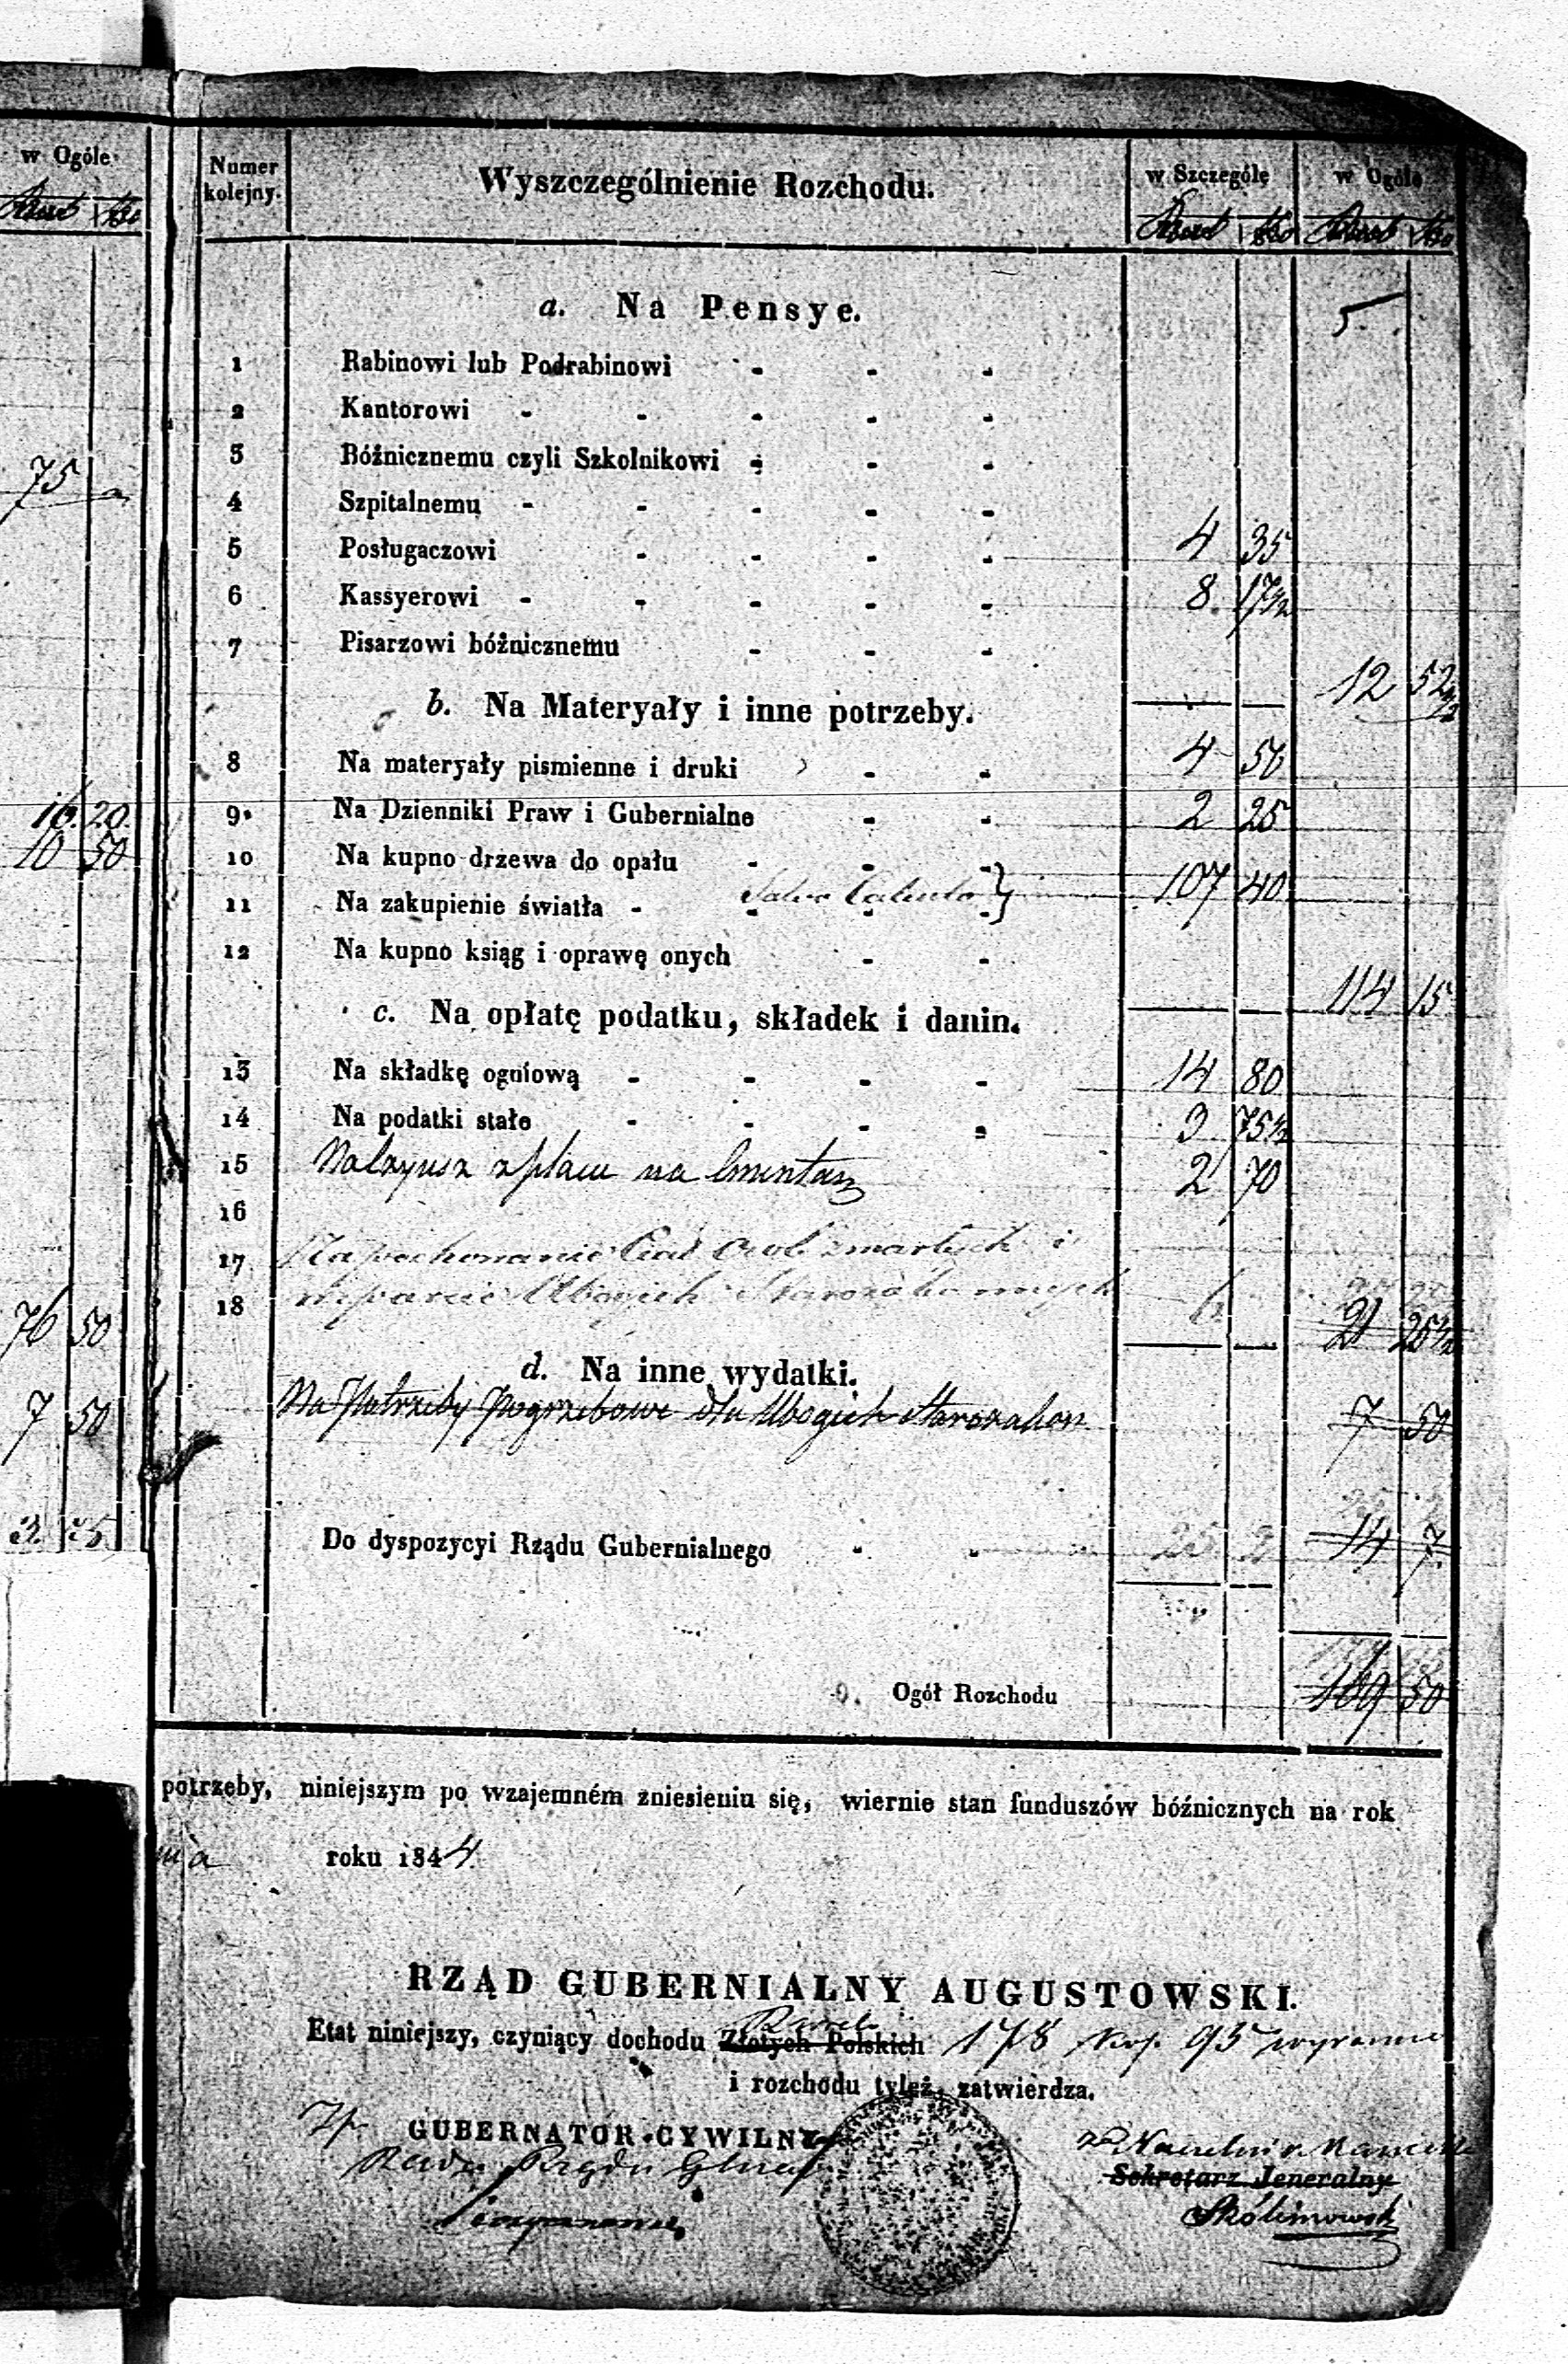 w Ogóle
75
16 20
10 50
76 50
7 50
3 75
Numer kolejny. Wyszczególnienie Rozchodu. w Szczególe w Ogóle
a. Na Pensye. 5
1 Rabinowi lub Podrabinowi - - -
2 Kantorowi - - - - -
3 Bóżnicznemu czyli Szkolnikowi - - -
4 Szpitalnemu - - - - -
5 Posługaczowi - - - - 4 35
6 Kassyerowi - - - - - 8 17½
7 Pisarzowi bóżnicznemu - - -
12 52½
b. Na Materyały i inne potrzeby.
8 Na materyały pismienne i druki - - 4 50
9 Na Dzienniki Praw i Gubernialne - - 2 25
10 Na kupno drzewa do opału - - -
11 Na zakupienie światła - Salvo Calculo } 107 40
12 Na kupno ksiąg i oprawę onych - -
114 15
c. Na opłatę podatku, składek i danin.
13 Na składkę ogniową - - - - 14 80
14 Na podatki stałe - - - - 3 75½
15 na 2 70
16
17 Na pochowanie Ciał Osób zmarłych i
18 wsparcie Ubogich Starozakonnych 6
21 25½
d. Na inne wydatki.
Na Potrzeby Pogrzebowe dla Ubogich Starozakon 7 50
Do dyspozycyi Rządu Gubernialnego - - 25 2 14 7
Ogół Rozchodu 169 50
potrzeby, niniejszym po wzajemném zniesieniu się, wiernie stan funduszów bóżnicznych na rok
nia roku 1844.
RZĄD GUBERNIALNY AUGUSTOWSKI.
Etat niniejszy, czyniący dochodu Złotych Polskich Rubli 178 kop. 95 wyraźnie
i rozchodu tyleż, zatwierdza.
GUBERNATOR CYWILNY
Radca Rządu
Sekretarz Jeneralny
Skólimowski